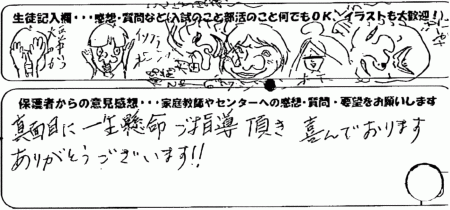 生徒記入欄・・・感想・質問など（入試のこと部活のこと何でもＯＫ、イラストも大歓迎！）
保護者からの意見感想・・・家庭教師やセンターへの感想・質問・要望をお願いします
真面目に一生懸命 ご指導 頂き 喜んでおります
ありがとうございます!!